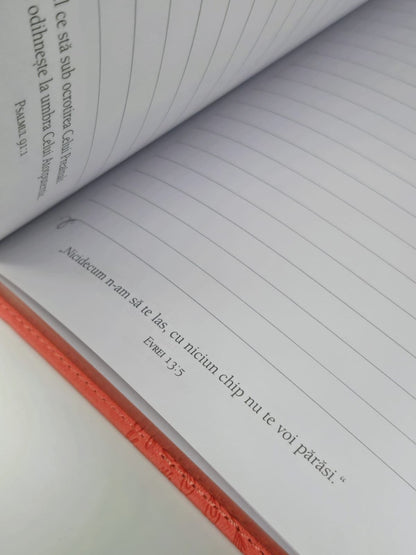 l ce stă sub ocrotirea Celui Preaînalt
odihnește la umbra Celui Atotputernic.
Psalmul 91:1
„Nicidecum n-am să te las, cu niciun chip nu te voi părăsi.“
Evrei 13:5